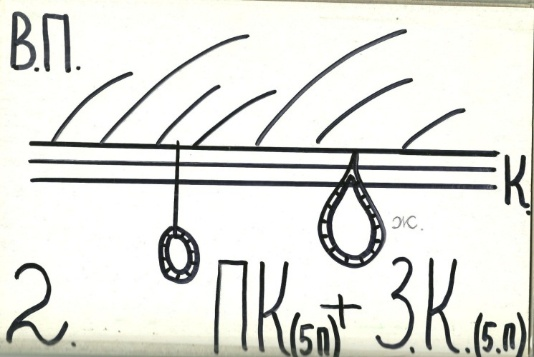 В.П.
К.
ж.
2. ПК(5п) + З.К.(5.п)